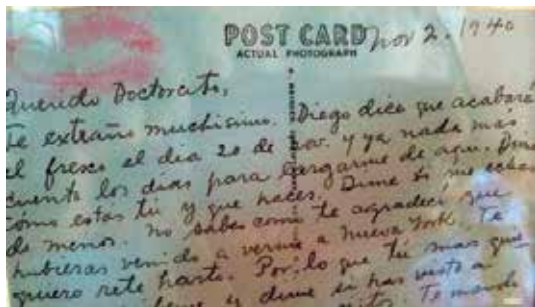 POST CARD Nov 2. 1940
ACTUAL PHOTOGRAPH
Querido Doctorcito,
Te extraño muchisimo. Diego dice que acabará
el fresco el dia 20 de Nov. y ya nada mas
cuento los dias para largarme de aqui. Dime
cómo estas tú y que haces. Dime si me echas
de menos. No sabes como te agradecí que
hubieras venido a verme a Nueva York. Te
quiero rete harto. Por lo que tú mas quie
y dime si has visto a
Te mando